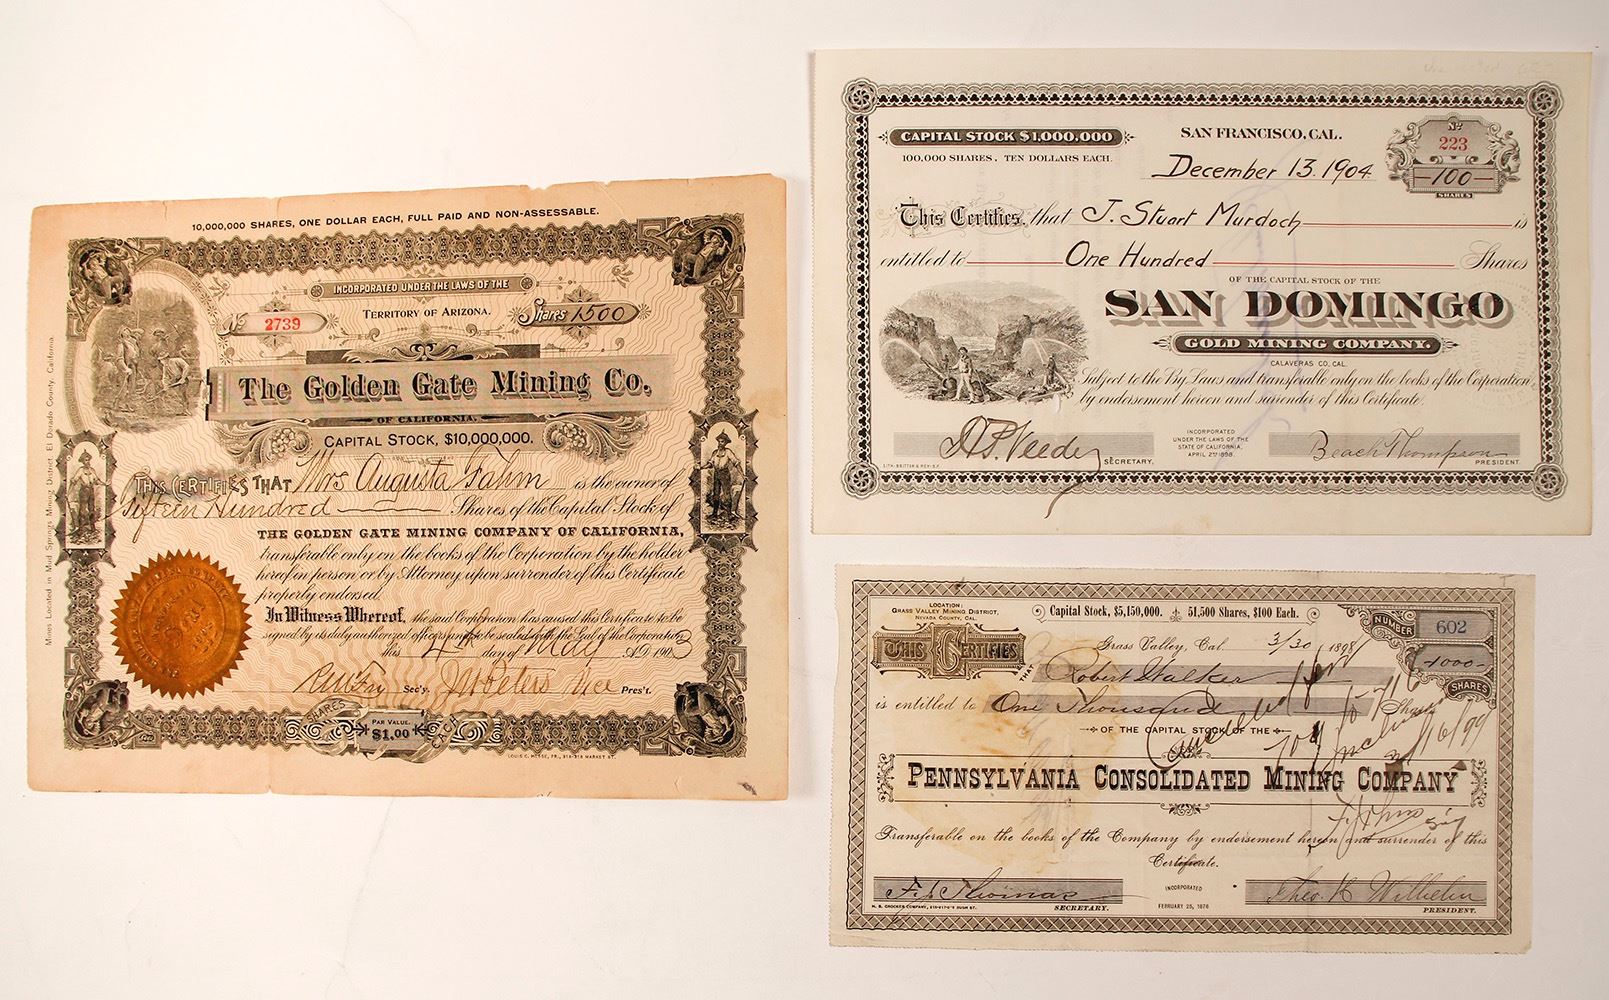 10,000,000 SHARES, ONE DOLLAR EACH, FULL PAID AND NON-ASSESSABLE.
INCORPORATED UNDER THE LAWS OF THE
TERRITORY OF ARIZONA.
No 2739
Shares 1500
The Golden Gate Mining Co.
OF CALIFORNIA.
CAPITAL STOCK, $10,000,000.
THIS CERTIFIES THAT Mrs Augusta Fahm is the owner of
Fifteen Hundred Shares of the Capital Stock of
THE GOLDEN GATE MINING COMPANY OF CALIFORNIA,
transferable only on the books of the Corporation by the holder
hereof in person or by Attorney, upon surrender of this Certificate
properly endorsed.
In Witness Whereof, the said Corporation has caused this Certificate to be
signed by its duly authorized officers and to be sealed with the Seal of the Corporation
this 4th day of May A.D. 1903
Sec'y. J M Peters Vice Pres't.
SHARES
PAR VALUE.
$1.00
EACH
LOUIS C. HESSE, PR., MARKET ST.
Mines Located in Mud Springs Mining District, El Dorado County, California.
CAPITAL STOCK $1,000,000
100,000 SHARES, TEN DOLLARS EACH.
SAN FRANCISCO, CAL.
December 13, 1904
No
223
100
SHARES
This Certifies, that J. Stuart Murdoch is
entitled to One Hundred Shares
OF THE CAPITAL STOCK OF THE
SAN DOMINGO
GOLD MINING COMPANY.
CALAVERAS CO, CAL.
Subject to the By Laws and transferable only on the books of the Corporation,
by endorsement hereon and surrender of this Certificate.
SECRETARY.
INCORPORATED
UNDER THE LAWS OF THE
STATE OF CALIFORNIA,
APRIL 2ND 1898.
Beach Thompson
PRESIDENT
LITH. BRITTON & REY, S.F.
LOCATION:
GRASS VALLEY MINING DISTRICT,
NEVADA COUNTY, CAL.
Capital Stock, $5,150,000. 51,500 Shares, $100 Each.
NUMBER 602
1000
SHARES
Grass Valley, Cal. 3/30 1898
THIS CERTIFIES
THAT Robert Walker
is entitled to One Thousand Shares
OF THE CAPITAL STOCK OF THE
PENNSYLVANIA CONSOLIDATED MINING COMPANY
Transferable on the books of the Company by endorsement hereon and surrender of this
Certificate.
F. J. Thomas
SECRETARY.
INCORPORATED
FEBRUARY 25, 1876
Theo. H Wilhelm
PRESIDENT.